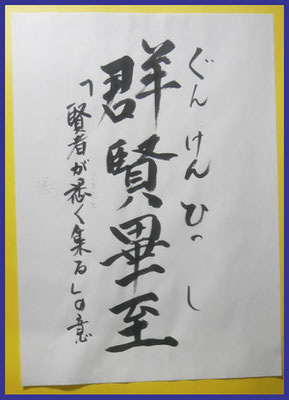 ぐんけんひっし
群賢畢至
「賢者が悉く集る」の意